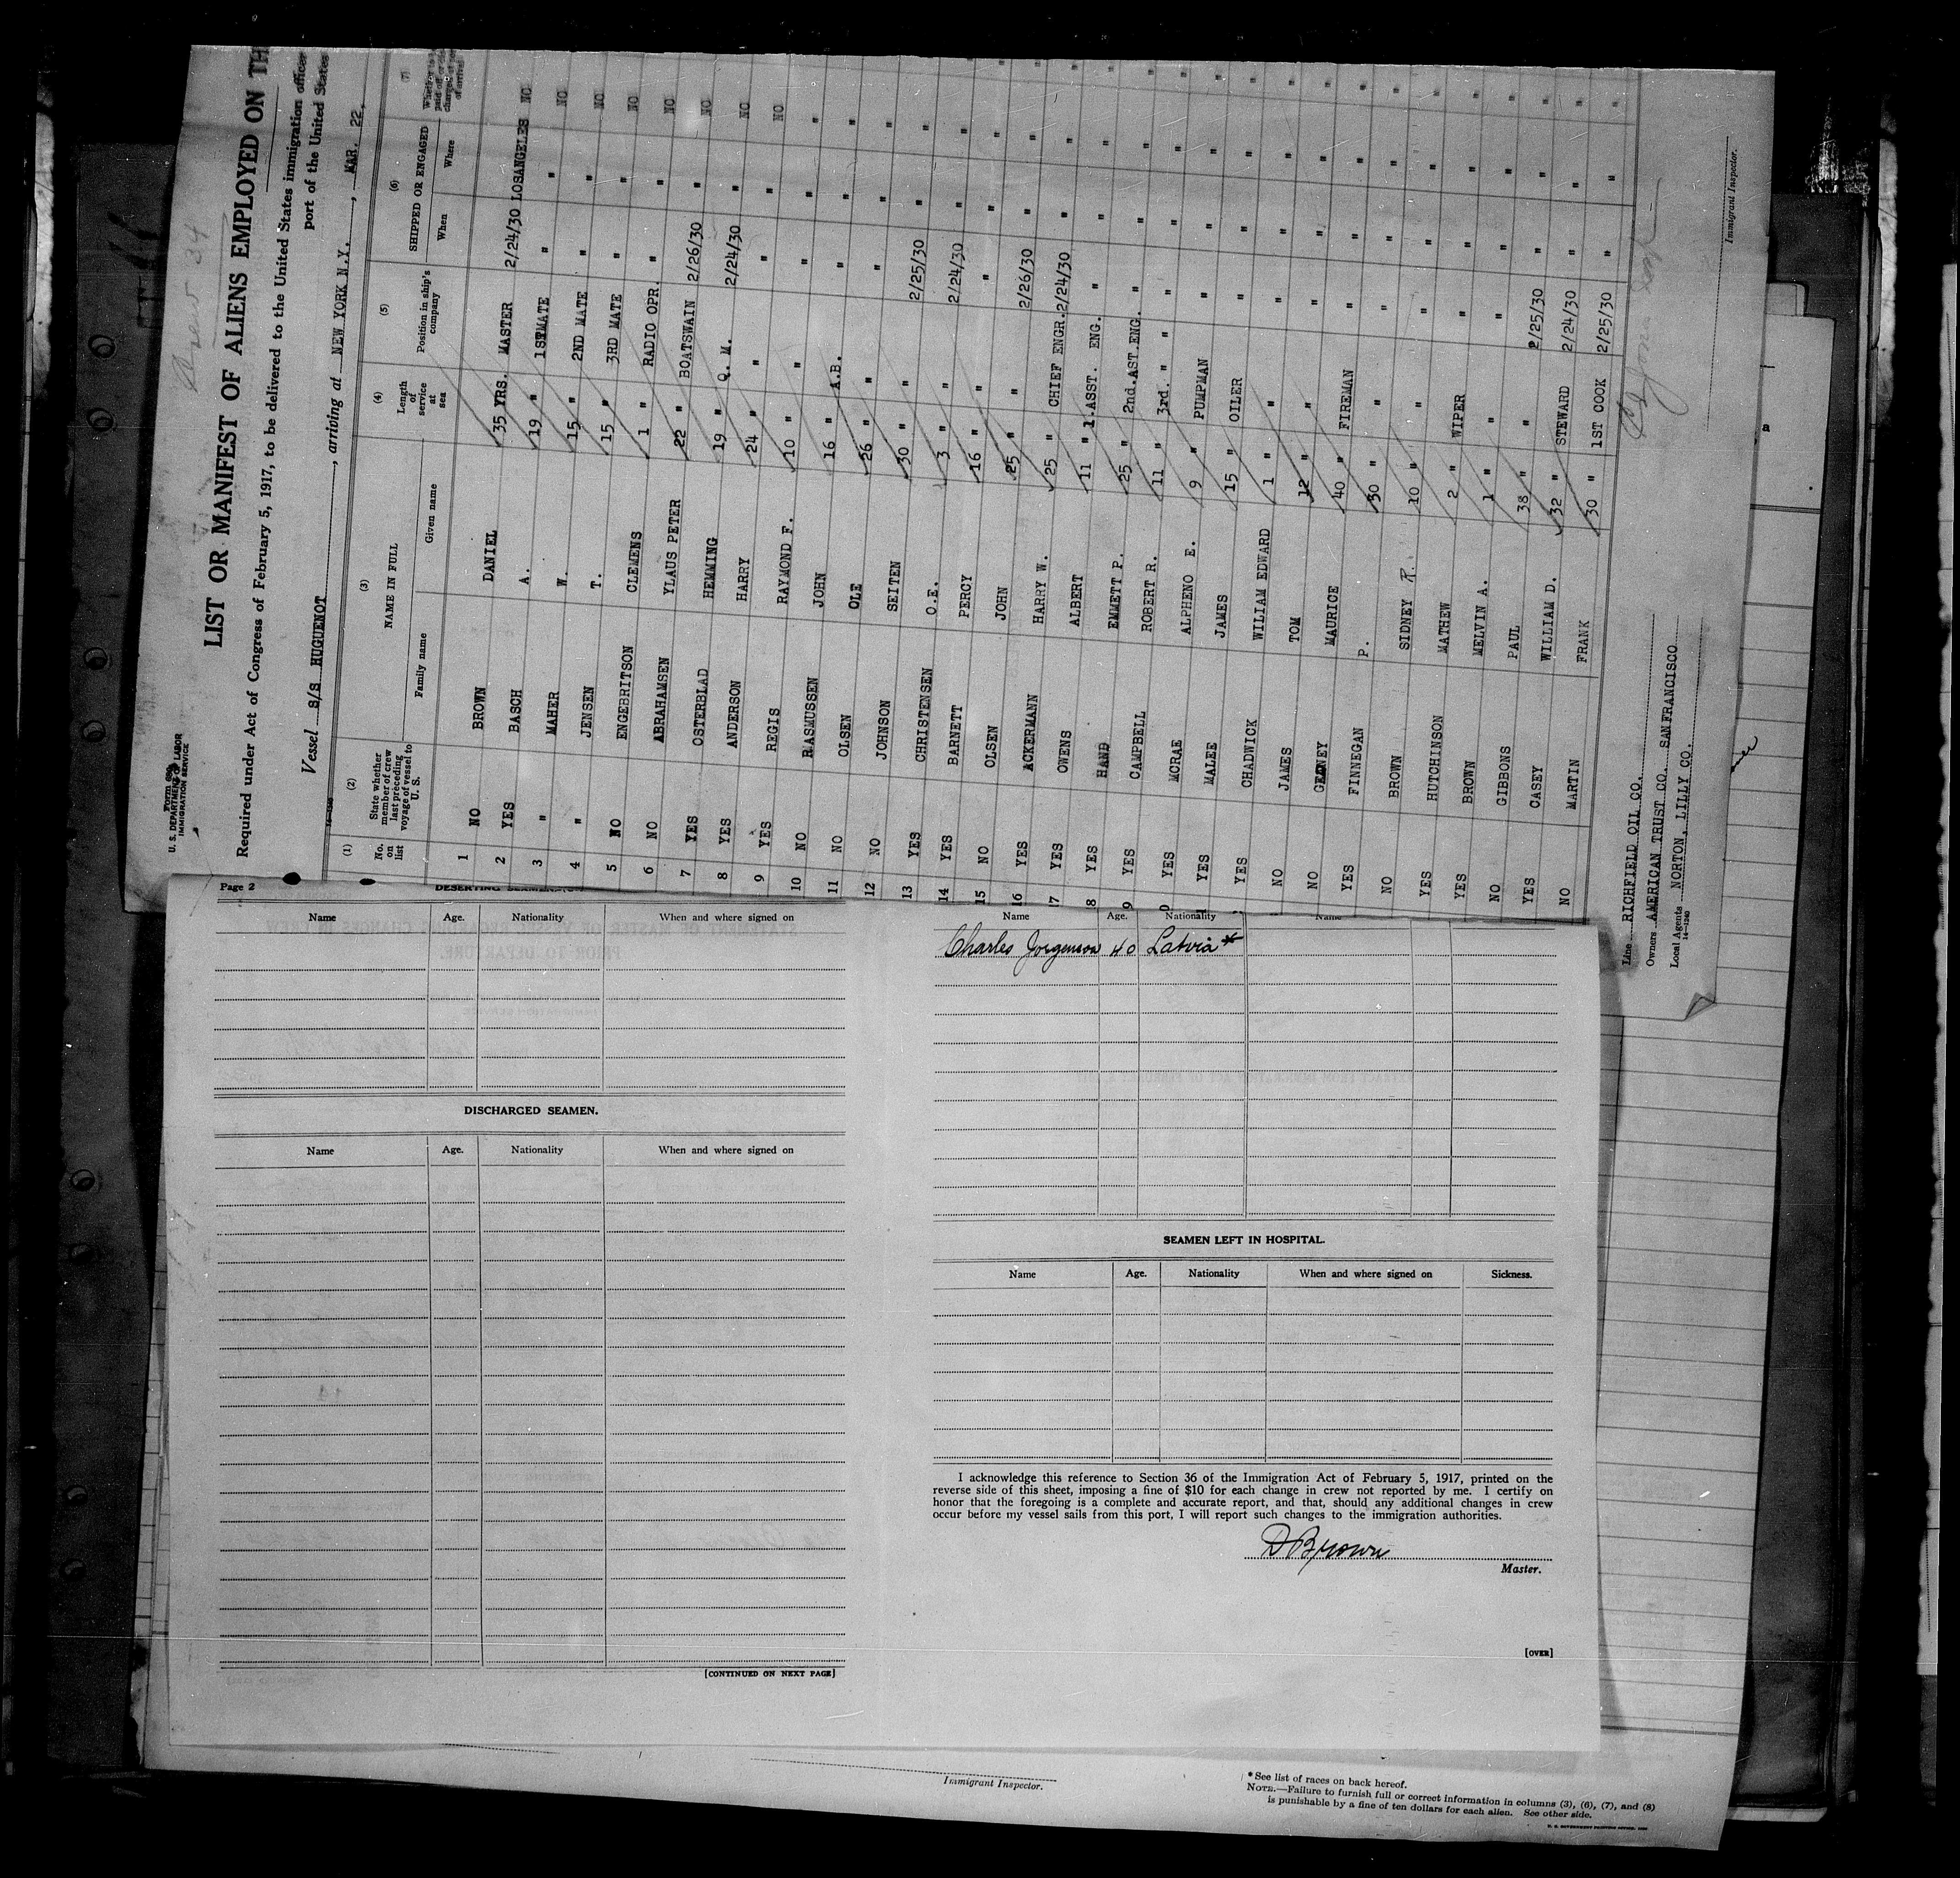 Form 689
U. S. DEPARTMENT OF LABOR
IMMIGRATION SERVICE
LIST OR MANIFEST OF ALIENS EMPLOYED ON TH
Required under Act of Congress of February 5, 1917, to be delivered to the United States immigration officer
port of the United States
Vessel S/S HUGUENOT, arriving at NEW YORK N.Y., MAR. 22,
(1) (2) (3) (4) (5) (6) (7)
No. on list
State whether member of crew last preceding voyage of vessel to U. S.
NAME IN FULL
Family name Given name
Length of service at sea
Position in ship's company
SHIPPED OR ENGAGED
When Where
1 NO BROWN DANIEL 35 YRS. MASTER 2/24/30 LOSANGELES NO
2 YES BASCH A. 19 " 1STMATE " " NO
3 " MAHER W. 15 " 2ND MATE " " NO
4 " JENSEN T. 15 " 3RD MATE " " NO
5 NO ENGEBRITSON CLEMENS 1 " RADIO OPR. " " NO
6 NO ABRAHAMSEN YLAUS PETER 22 " BOATSWAIN 2/26/30 " NO
7 YES OSTERBLAD HEMMING 19 " Q. M. 2/24/30 " NO
8 YES ANDERSON HARRY 24 " " " " NO
9 YES REGIS RAYMOND F. 10 " " " " "
10 NO RASMUSSEN JOHN 16 " A.B. " " "
11 NO OLSEN OLE 26 " " " " "
12 NO JOHNSON SEITEN 30 " " 2/25/30 " "
13 YES CHRISTENSEN O.E. 3 " " 2/24/30 " "
14 YES BARNETT PERCY 16 " " " " "
15 NO OLSEN JOHN 25 " " 2/26/30 " "
16 YES ACKERMANN HARRY W. 25 " CHIEF ENGR. 2/24/30 " "
17 YES OWENS ALBERT 11 " 1.ASST. ENG. " " "
18 YES HAND EMMETT P. 25 " 2nd.AST.ENG. " " "
19 YES CAMPBELL ROBERT R. 11 " 3rd. " " " " "
YES MCRAE ALPHENO E. 9 " PUMPMAN " " "
YES MALEE JAMES 15 " OILER " " "
YES CHADWICK WILIAM EDWARD 1 " " " " "
NO JAMES TOM 12 " " " " "
NO GEANEY MAURICE 40 " FIREMAN " " "
YES FINNEGAN P. 30 " " " " "
NO BROWN SIDNEY R. 10 " " " " "
YES HUTCHINSON MATHEW 2 " WIPER " " "
YES BROWN MELVIN A. 1 " " " " "
NO GIBBONS PAUL 38 " " 2/25/30 " "
YES CASEY WILLIAM D. 32 " STEWARD 2/24/30 " "
NO MARTIN FRANK 30 " 1ST COOK 2/25/30 " "
Line RICHFIELD OIL CO.
Owners AMERICAN TRUST CO. SANFRANCISCO
Local Agents NORTON, LILLY CO.
14—1240
Immigrant Inspector.
Page 2
Name Age. Nationality When and where signed on
DISCHARGED SEAMEN.
Name Age. Nationality When and where signed on
[CONTINUED ON NEXT PAGE]
Name Age. Nationality Name
Charles Jorgenson 40 Latvia *
SEAMEN LEFT IN HOSPITAL.
Name Age. Nationality When and where signed on Sickness.
I acknowledge this reference to Section 36 of the Immigration Act of February 5, 1917, printed on the
reverse side of this sheet, imposing a fine of $10 for each change in crew not reported by me. I certify on
honor that the foregoing is a complete and accurate report, and that, should any additional changes in crew
occur before my vessel sails from this port, I will report such changes to the immigration authorities.
D Brown
Master.
[OVER]
Immigrant Inspector.
* See list of races on back hereof.
NOTE.—Failure to furnish full or correct information in columns (3), (6), (7), and (8)
is punishable by a fine of ten dollars for each alien. See other side.